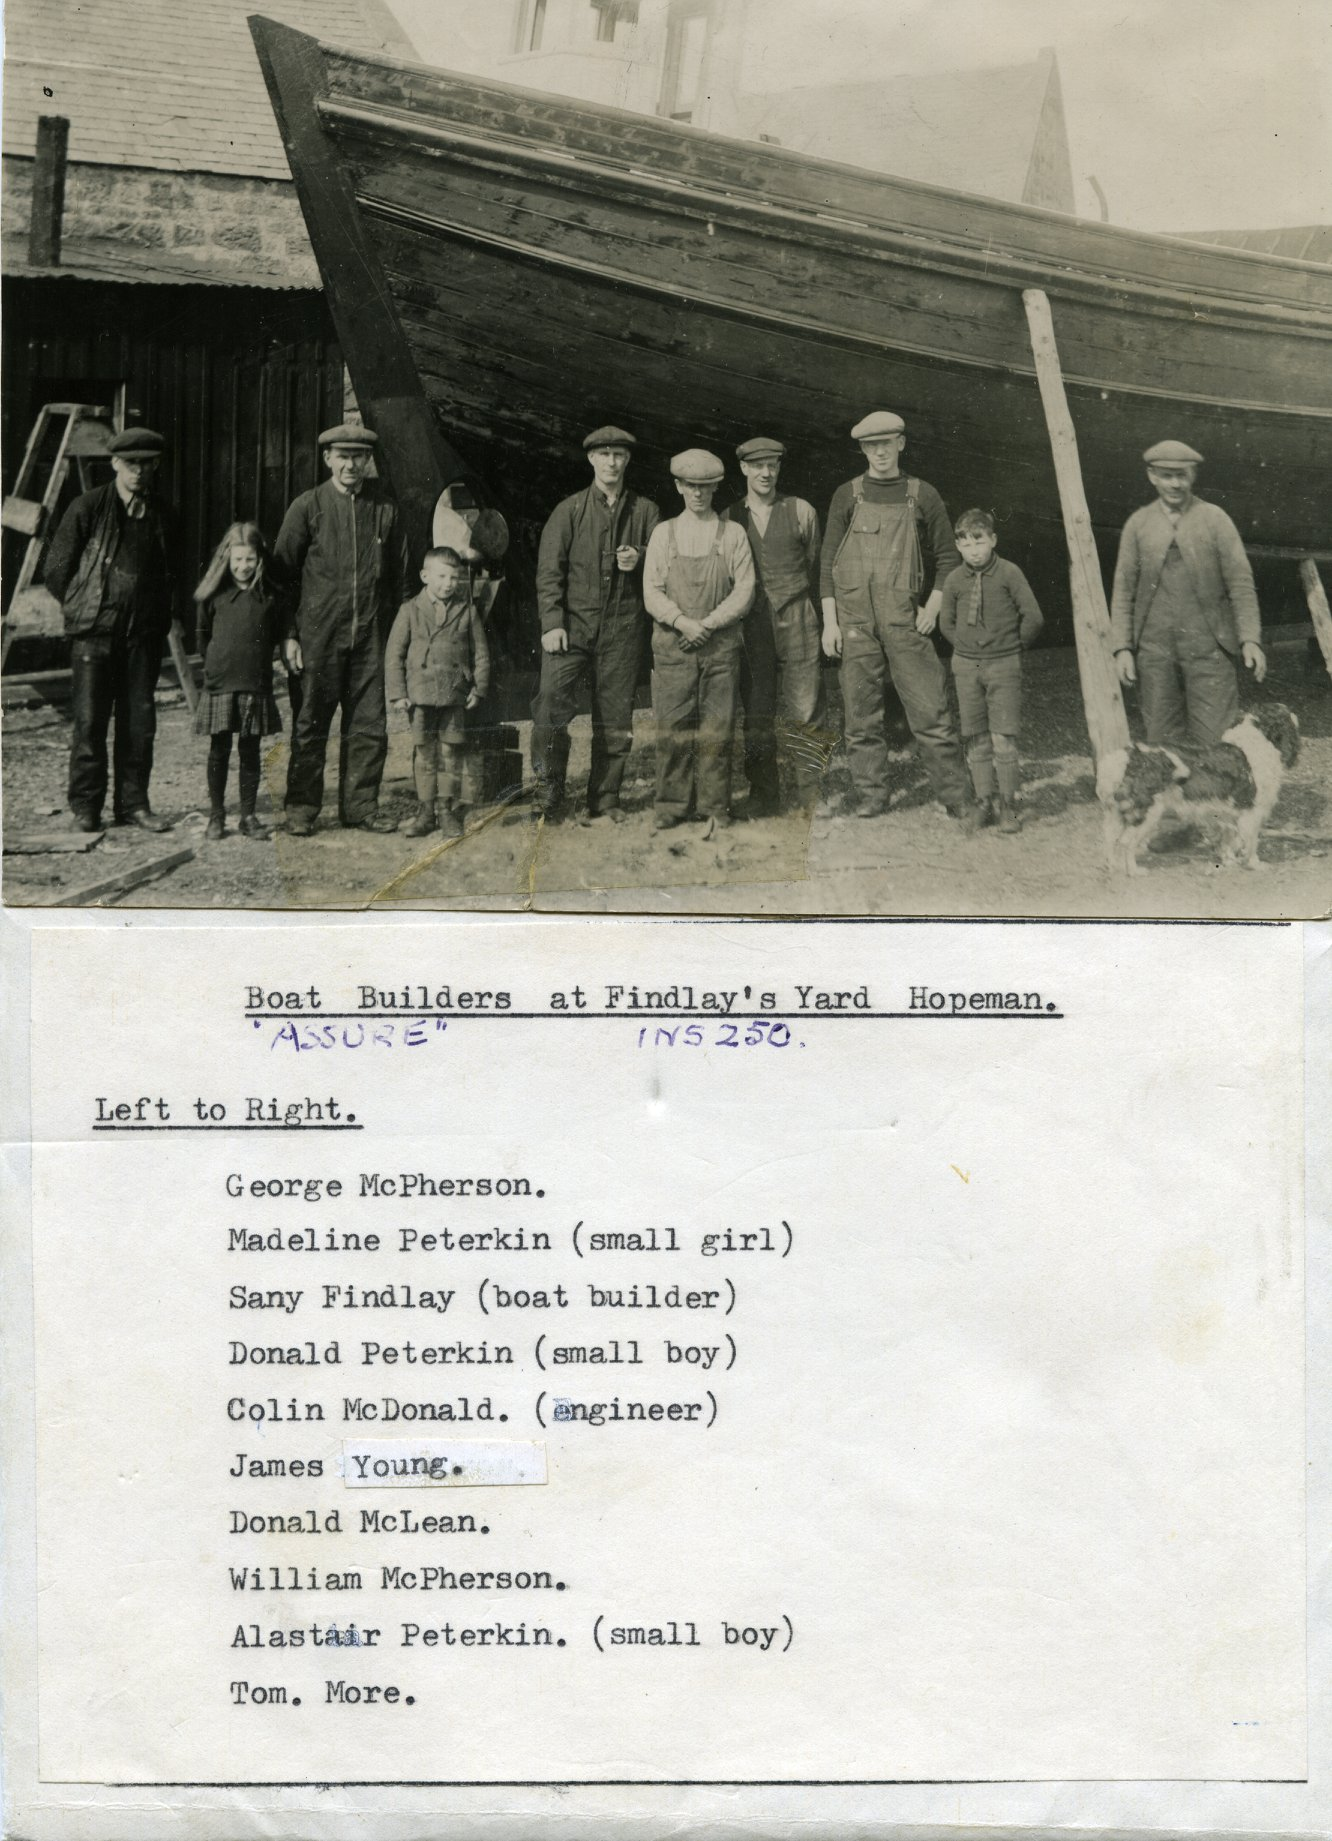 Boat Builders at Findlay's Yard Hopeman.
"ASSURE" INS 250.
Left to Right.
George McPherson.
Madeline Peterkin (small girl)
Sany Findlay (boat builder)
Donald Peterkin (small boy)
Colin McDonald. (engineer)
James Young.
Donald McLean.
William McPherson.
Alastair Peterkin. (small boy)
Tom. More.